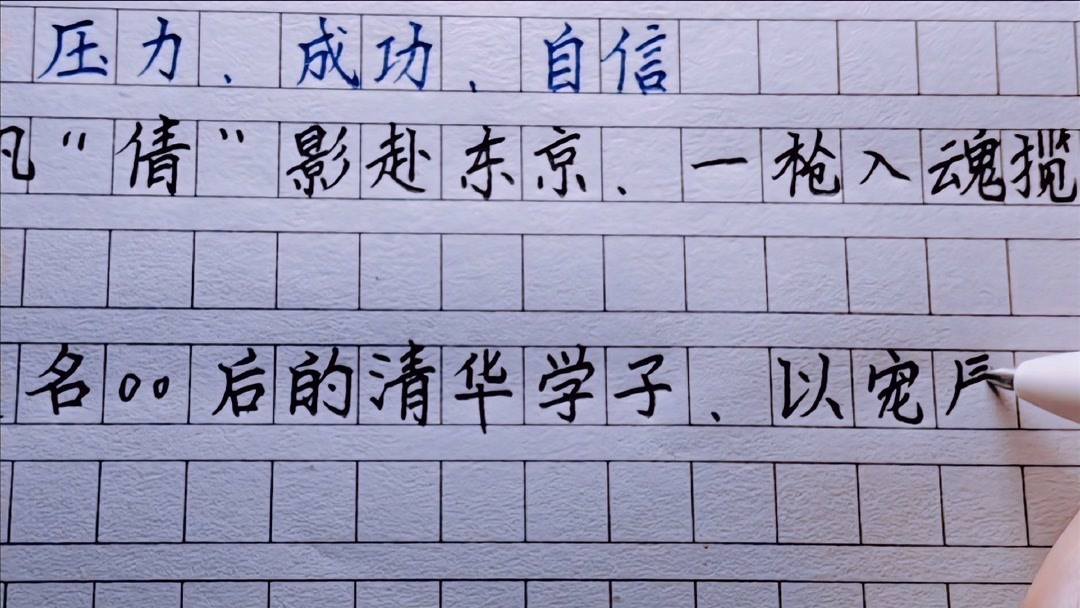 压力、成功、自信
凡“倩”影赴东京、一枪入魂揽
名00后的清华学子、以宠